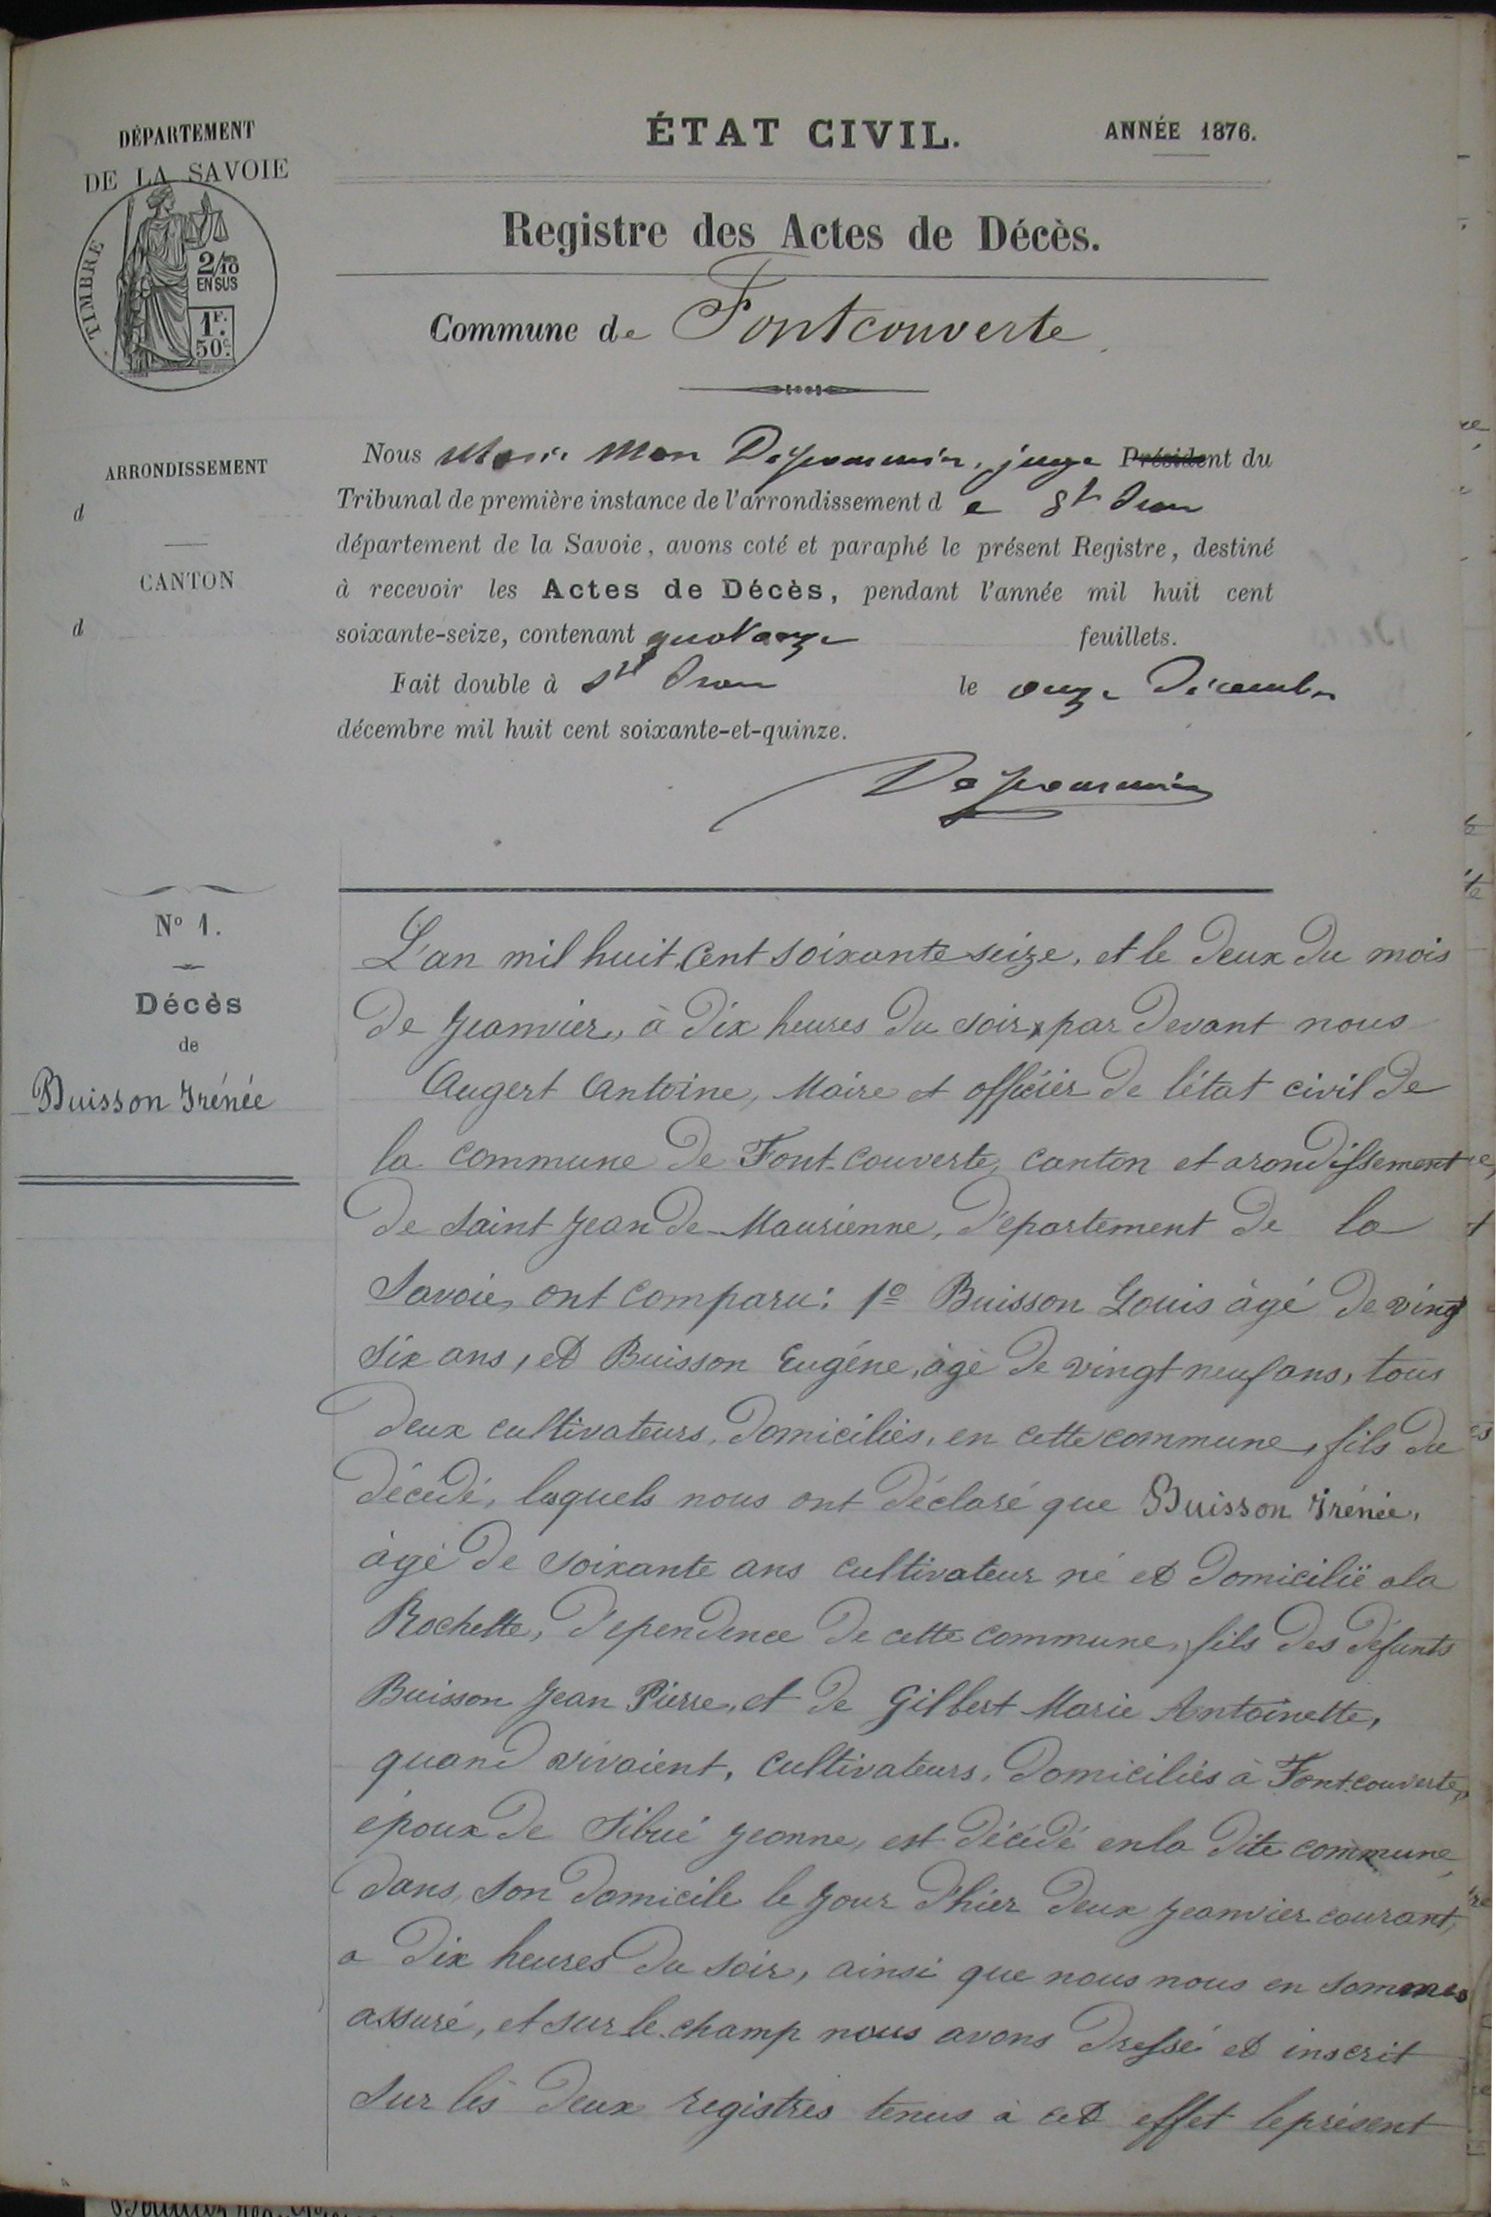 DÉPARTEMENT
DE LA SAVOIE
TIMBRE
2/10
EN SUS
1F.
50c.
ÉTAT CIVIL.
ANNÉE 1876.
Registre des Actes de Décès.
Commune de Fontcouverte
ARRONDISSEMENT
d
CANTON
d
Nous juge Président du
Tribunal de première instance de l'arrondissement d e St Jean
département de la Savoie, avons coté et paraphé le présent Registre, destiné
à recevoir les Actes de Décès, pendant l'année mil huit cent
soixante-seize, contenant quatorze feuillets.
Fait double à St Jean le onze Décembre
décembre mil huit cent soixante-et-quinze.
No 1.
Décès
de
Buisson Irénée
L'an mil huit cent soixante seize, et le deux du mois
de Jeanvier, à dix heures du soir, par devant nous
Augert Antoine, Maire et officier de l'état civil de
la commune de Font-couverte, canton et arondissement
de Saint Jean de Maurienne, département de la
Savoie, ont comparu: 1o Buisson Louis âgé de vingt
six ans, et Buisson Eugène, âgé de vingt neuf ans, tous
deux cultivateurs, domiciliés, en cette commune, fils du
décédé, lesquels nous ont déclaré que Buisson Irénée,
âgé de soixante ans cultivateur né et domicilié a la
Rochette, dépendence de cette commune, fils des défunts
Buisson Jean Pierre, et de Gilbert Marie Antoinette,
quand vivaient, cultivateurs, domiciliés à Font-couverte,
époux de Sibué Jeanne, est décédé en la dite commune,
dans son domicile le jour d'hier deux jeanvier courant,
a dix heures du soir, ainsi que nous nous en sommes
assuré, et sur le champ nous avons dressé et inscrit
sur lés deux registres tenus à cet effet le présent